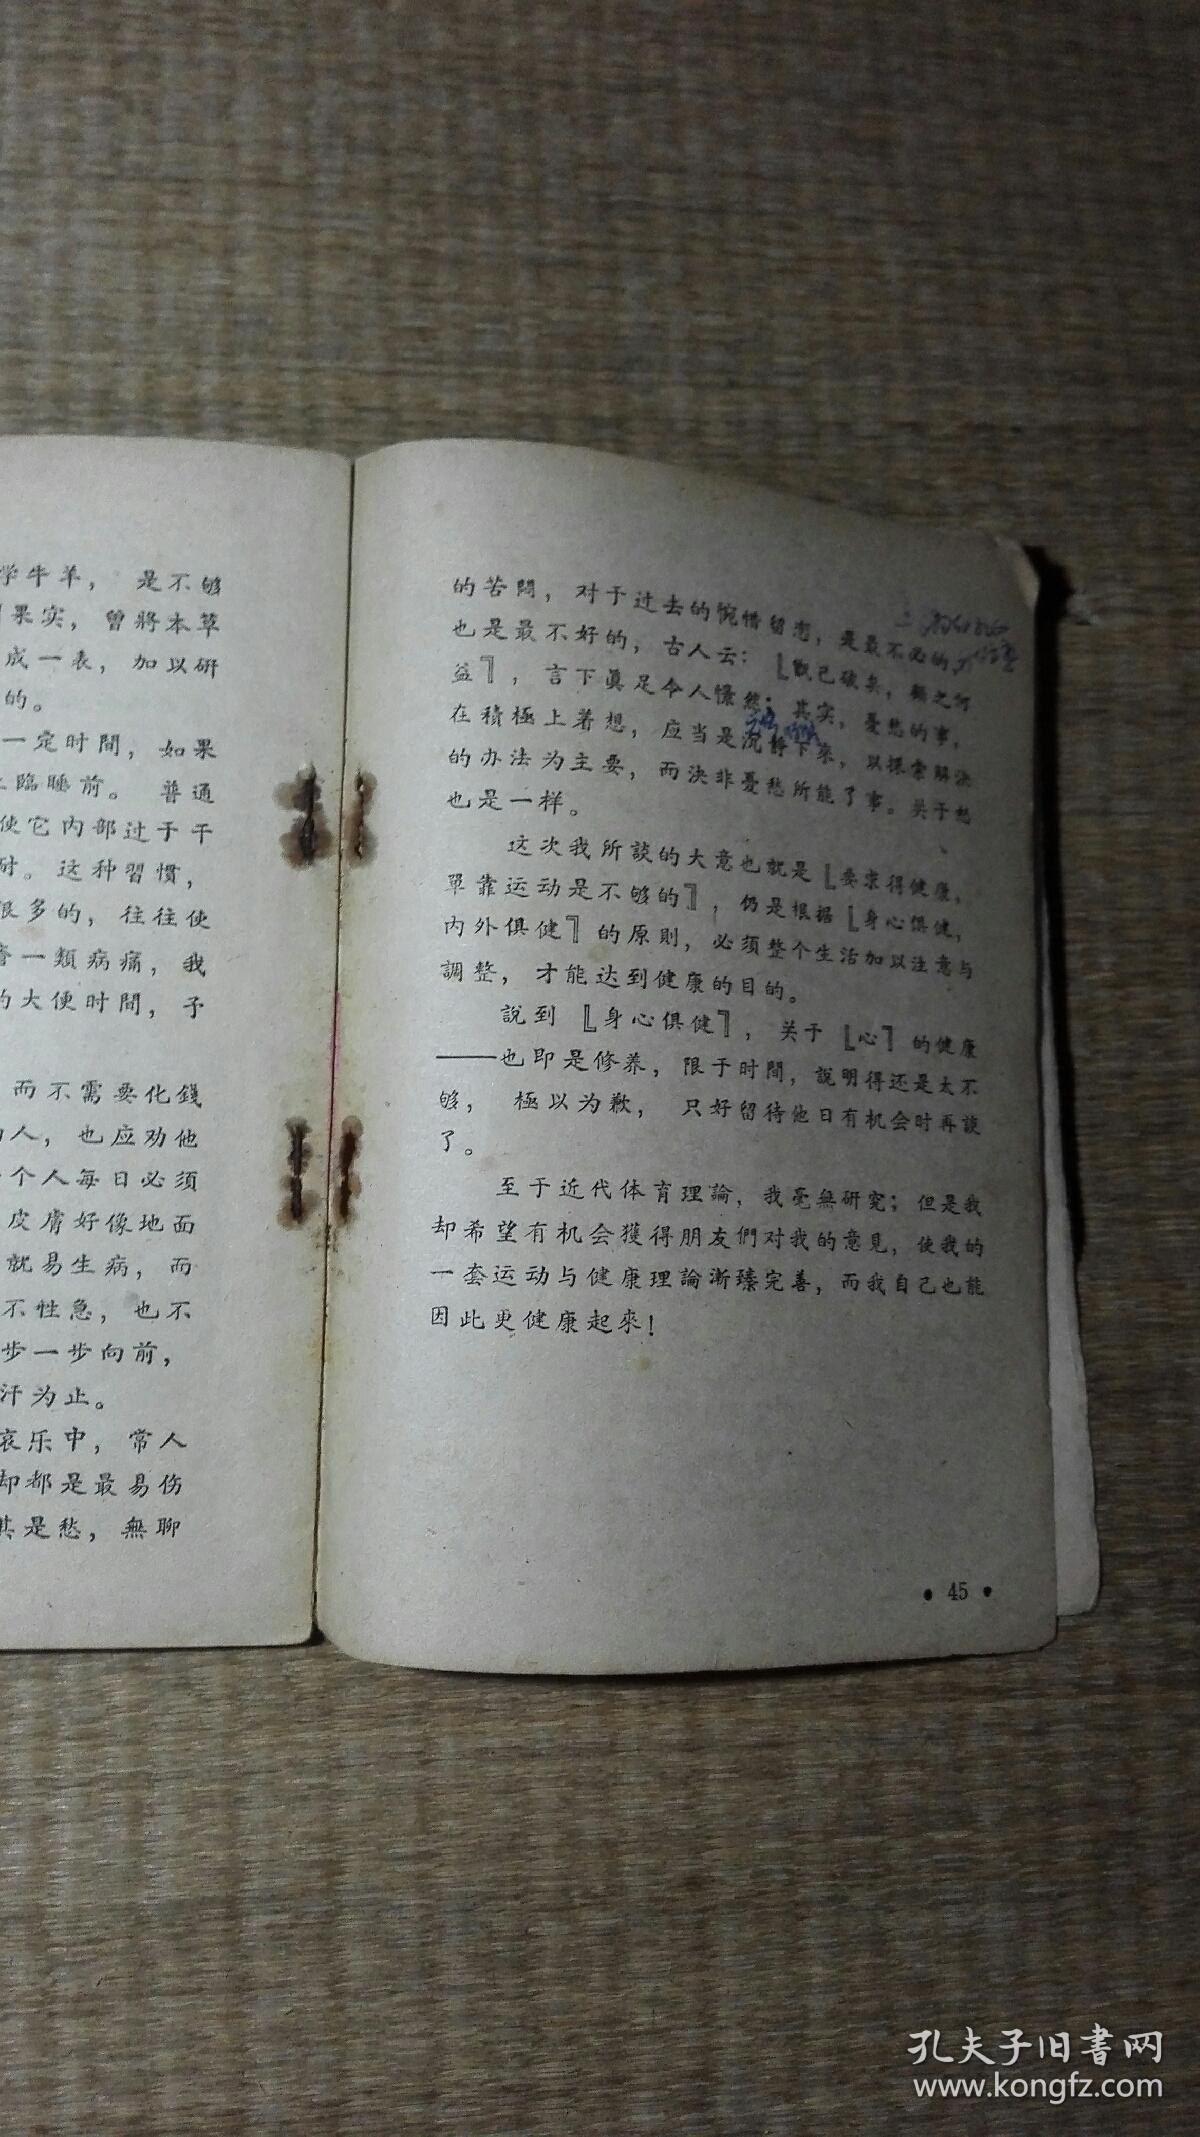 学牛羊， 是不够
果实，曾將本草
成一表，加以研
的。
一定时間，如果
臨睡前。 普通
使它内部过于干
耐。这种習慣，
很多的，往往使
一類病痛，我
的大便时間，予
而不需要化錢
人，也应劝他
个人每日必须
皮膚好像地面
就易生病，而
不性急，也不
步一步向前，
汗为止。
哀乐中，常人
却都是最易伤
其是愁，無聊
的苦悶，对于过去的惋惜留恋，是最不必的，
也是最不好的，古人云：⎣既已破矣，顧之何
益⎤，言下眞足令人愯然；其实，憂愁的事，
在積極上着想，应当是沉靜下來，以探索解决
的办法为主要，而决非憂愁所能了事。关于愁
也是一样。
这次我所談的大意也就是⎣要求得健康，
單靠运动是不够的⎤，仍是根据⎣身心俱健，
内外俱健⎤的原則，必须整个生活加以注意与
調整，才能达到健康的目的。
說到⎣身心俱健⎤，关于⎣心⎤的健康
——也即是修养，限于时間，說明得还是太不
够， 極以为歉， 只好留待他日有机会时再談
了。
至于近代体育理論，我毫無研究；但是我
却希望有机会獲得朋友們对我的意見，使我的
一套运动与健康理論漸臻完善，而我自己也能
因此更健康起來！
• 45 •
孔夫子旧書网
www.kongfz.com